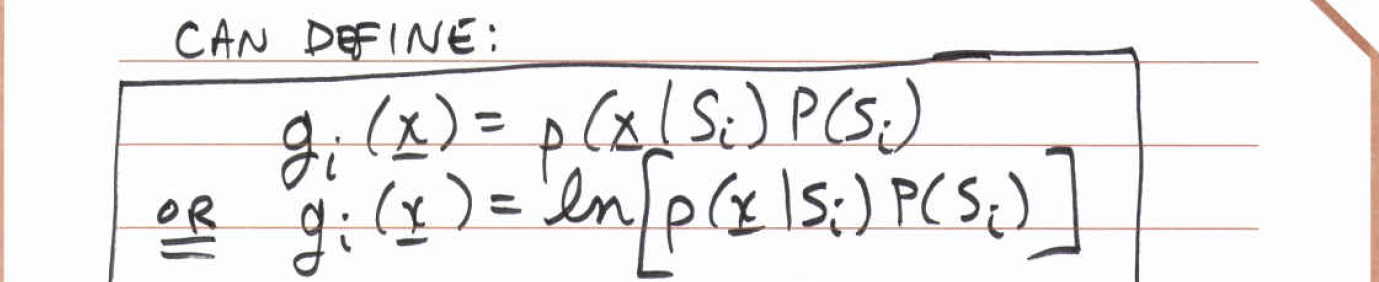 CAN DEFINE:
g_i(x̲) = p(x̲|S_i) P(S_i)
OR g_i(x̲) = ln[p(x̲|S_i) P(S_i)]